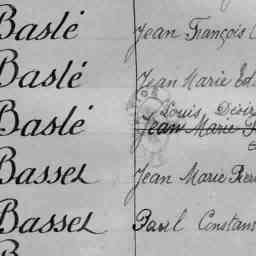 Baslé Jean François
Baslé Jean Marie
Baslé Louis
Jean Marie
Basset Jean Marie
Basset Paul Constant